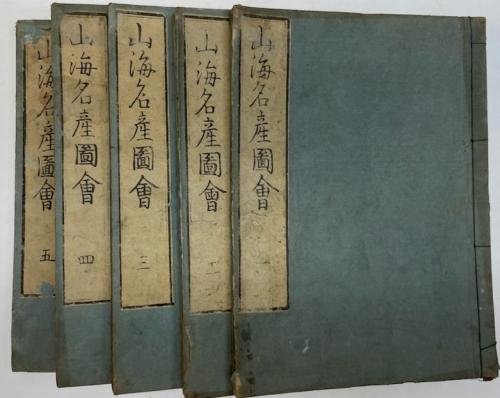 山海名産圖會 一
山海名産圖會 二
山海名産圖會 三
山海名産圖會 四
山海名産圖會 五